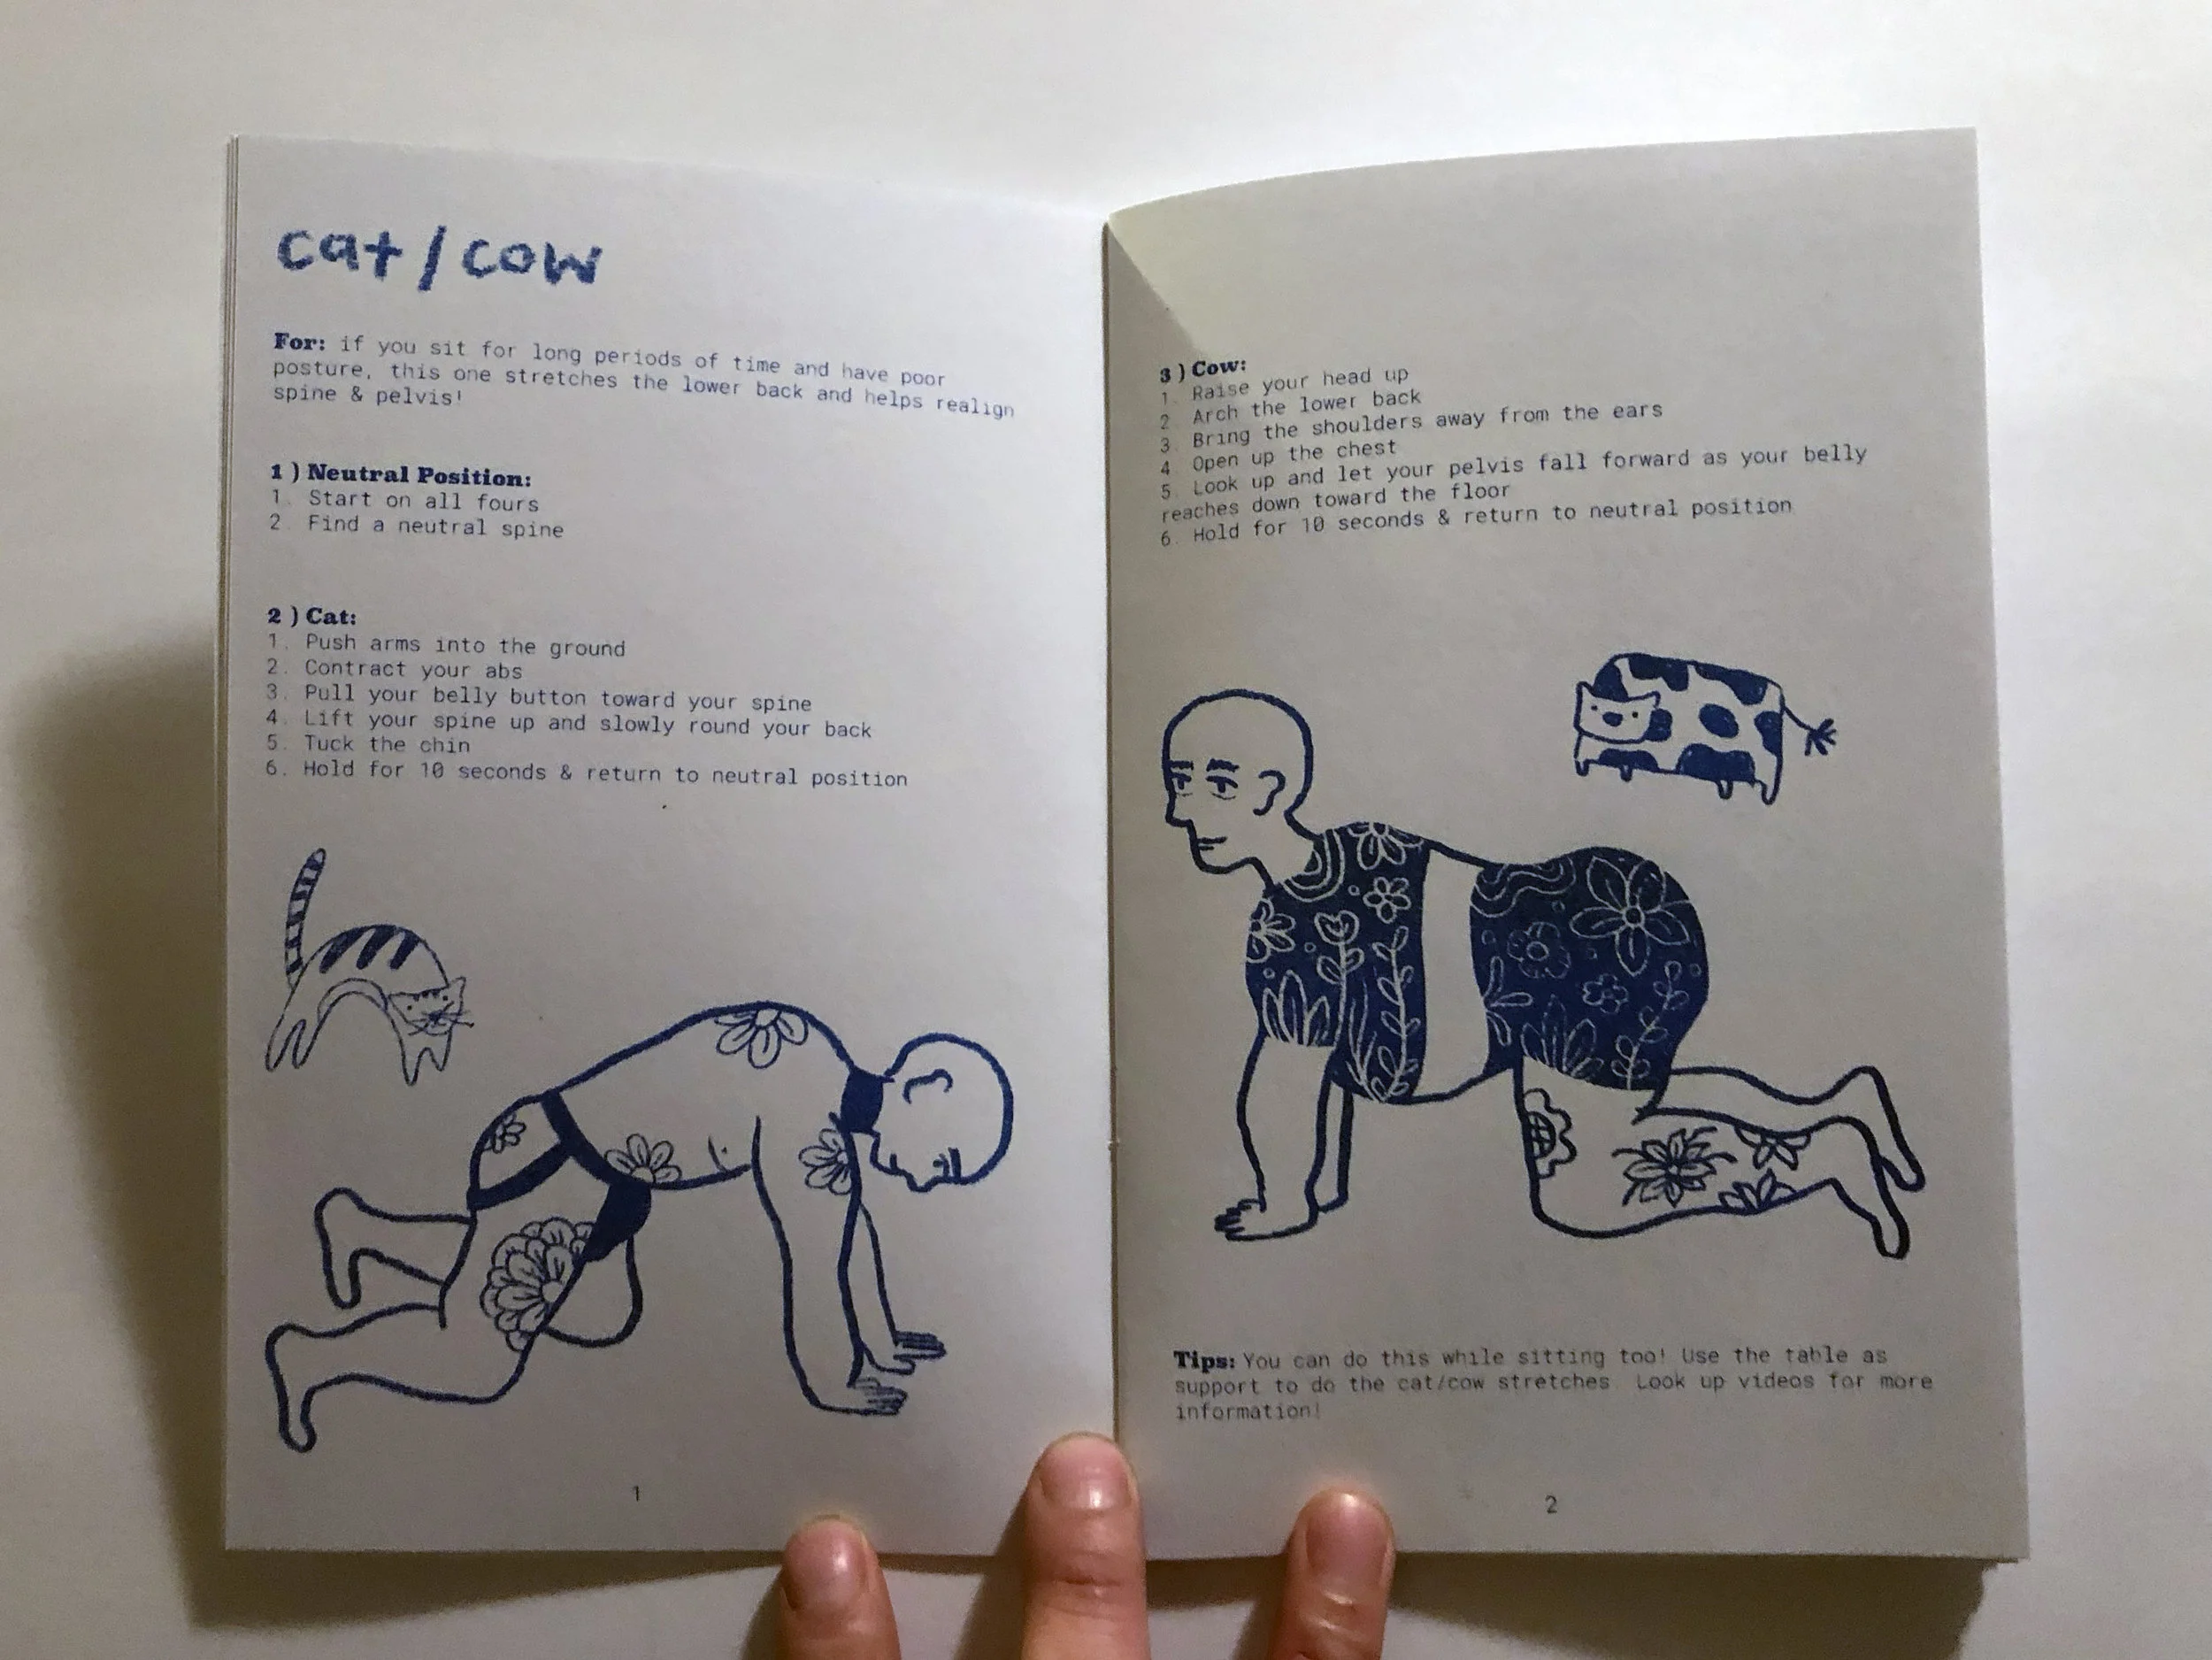 cat/cow
For: if you sit for long periods of time and have poor
posture, this one stretches the lower back and helps realign
spine & pelvis!
1 ) Neutral Position:
1. Start on all fours
2. Find a neutral spine
2 ) Cat:
1. Push arms into the ground
2. Contract your abs
3. Pull your belly button toward your spine
4. Lift your spine up and slowly round your back
5. Tuck the chin
6. Hold for 10 seconds & return to neutral position
1
3 ) Cow:
1. Raise your head up
2. Arch the lower back
3. Bring the shoulders away from the ears
4. Open up the chest
5. Look up and let your pelvis fall forward as your belly
reaches down toward the floor
6. Hold for 10 seconds & return to neutral position
Tips: You can do this while sitting too! Use the table as
support to do the cat/cow stretches. Look up videos for more
information!
2